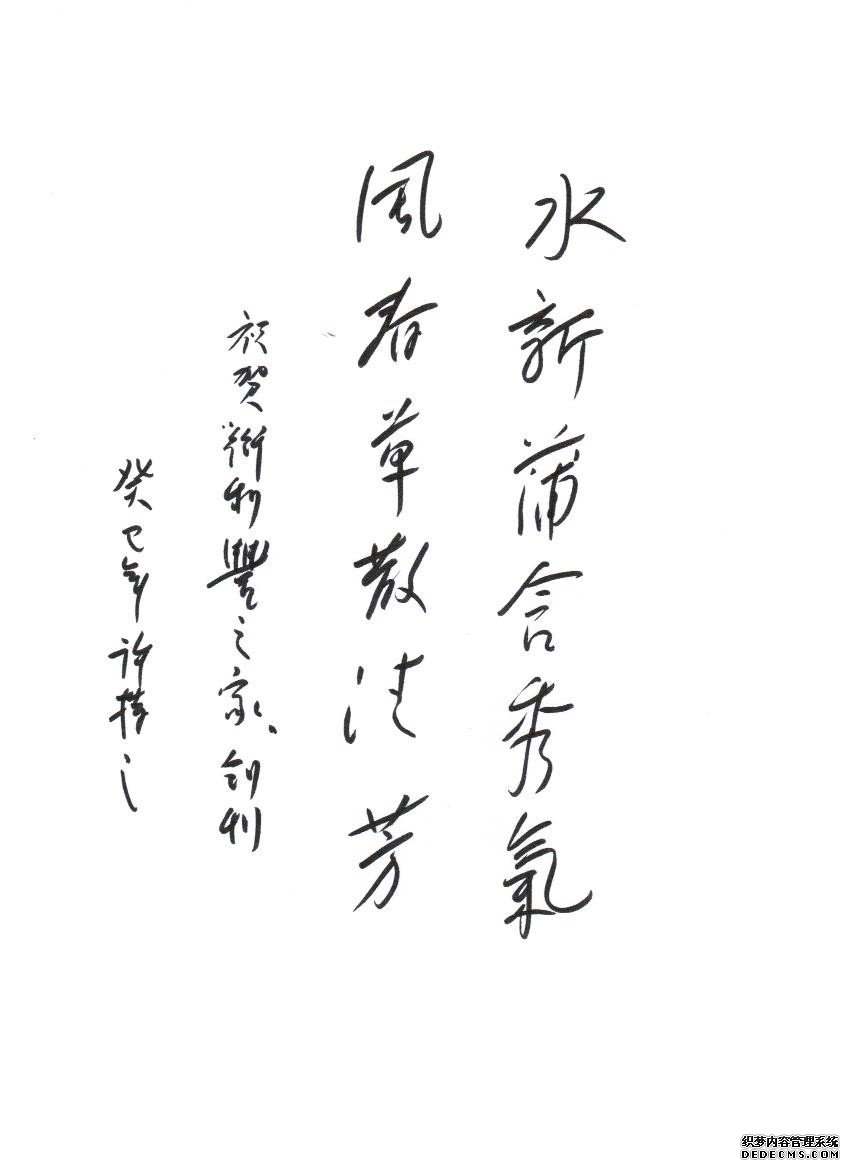 水新蒲含秀氣
風春草散清芳
祝賀衍利豐之家創刊
癸巳年許撐之
织梦内容管理系统
DEDECMS.COM